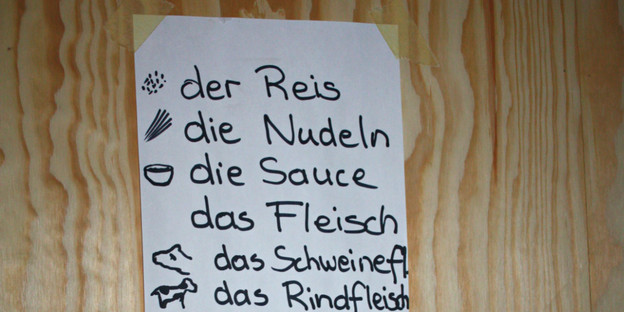 der Reis
die Nudeln
die Sauce
das Fleisch
das Schweinefl.
das Rindfleisch